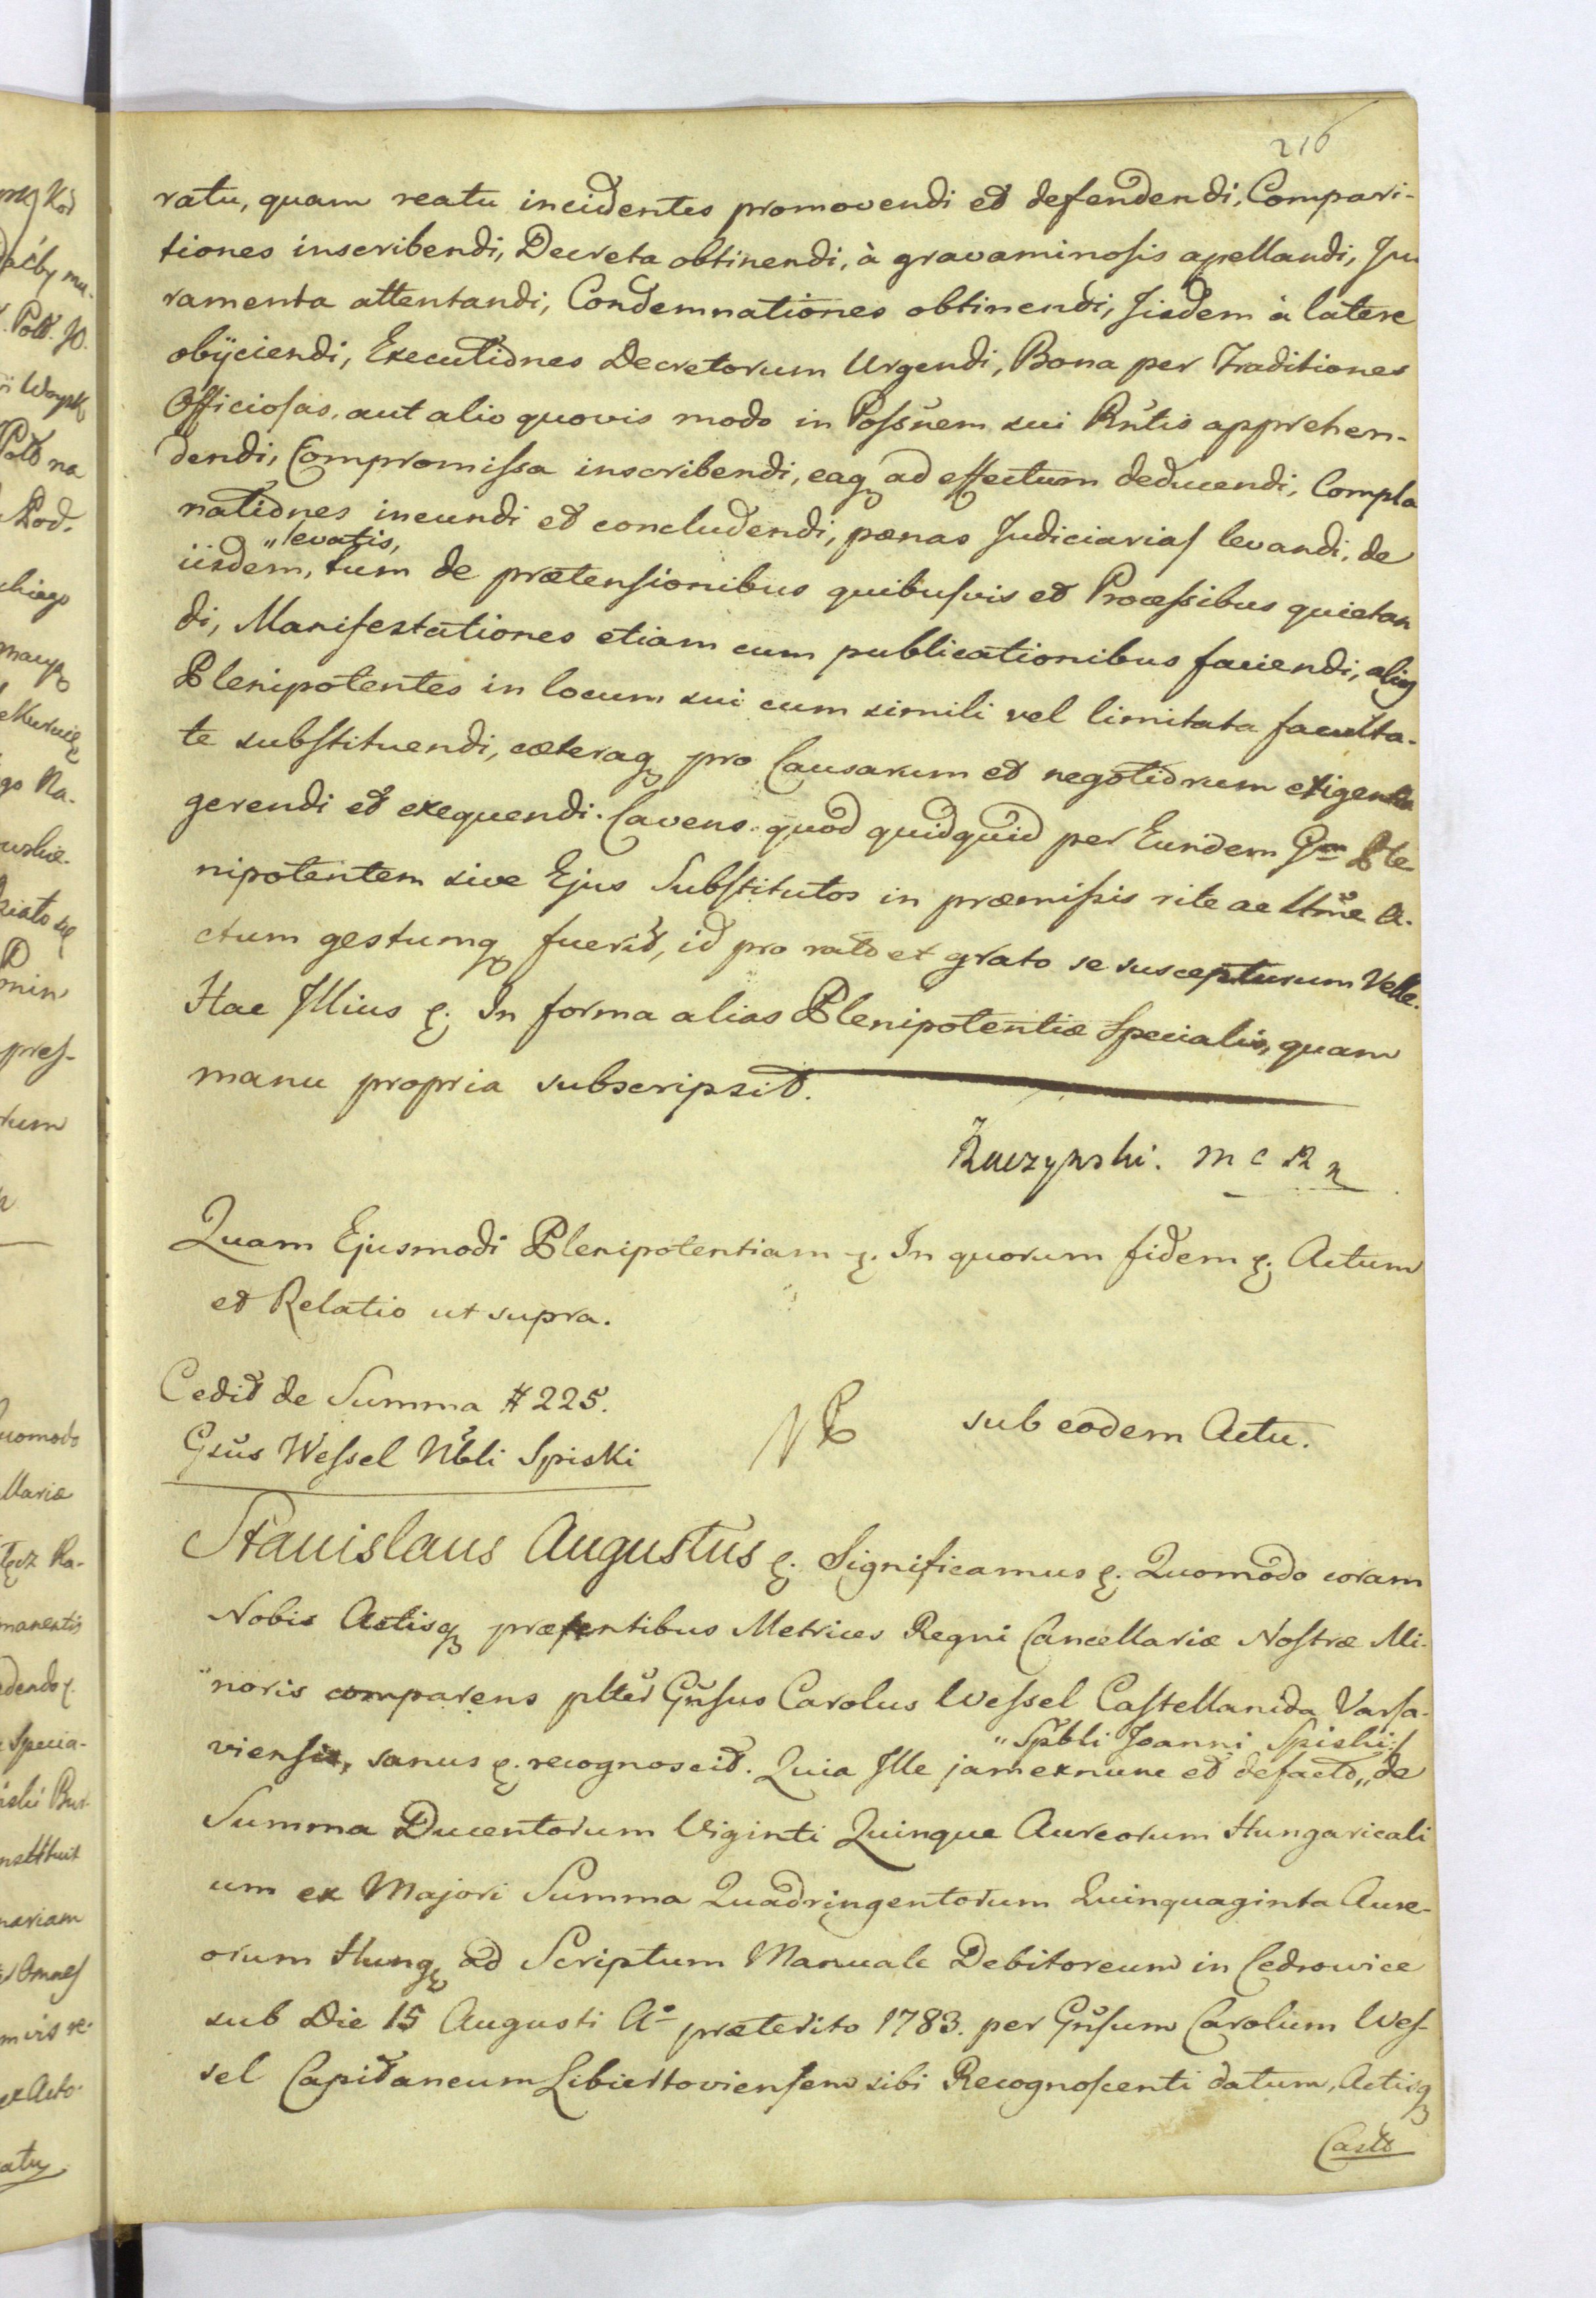 216
ratu, quam reatu incidentes promovendi et defendendi, Compari-
tiones inscribendi, Decreta obtinendi, à gravaminosis apellandi, Ju
ramenta attentandi, Condemnationes obtinendi, Iisdem à latere
obÿciendi, Executiones Decretorum Urgendi, Bona per Traditiones
Officiosas, aut alio quovis modo in Possnem sui Rntis apprehen-
dendi, Compromissa inscribendi, eaq ad effectum deducendi, Compla
nationes ineundi et concludendi, pœnas Judiciarias levandi, de
"levatis,
iisdem," tum de prætensionibus quibusvis et Processibus quietan
di, Manifestationes etiam cum publicationibus faciendi, alios
Plenipotentes in locum sui cum simili vel limitata faculta-
te substituendi, cæteraq pro Causarum et negotiorum exigentia
gerendi et exequendi. Cavens quod quidquid per Eundem Gm Ple
nipotentem sive Ejus Substitutos in præmissis rite ac ltme a-
ctum gestumq fuerit, id pro rato et grato se suscepturum Velle.
Hac Illius &. In forma alias Plenipotentiæ Specialis, quam
manu propria subscripsit.
Raczynski. M C R
Quam Ejusmodi Plenipotentiam &. In quorum fidem &. Actum
et Relatio ut supra.
Cedit de Summa # 225.
Gsus Wessel Nbli Spiski
sub eodem Actu.
Stanislaus Augustus &. Significamus &. Quomodo coram
Nobis Actisq præsentibus Metrices Regni Cancellariæ Nostræ Mi-
noris comparens plter Gnsus Carolus Wessel Castellanida Varsa-
"Spbli Joanni Spiski
viensis, sanus &. recognoscit. Quia Ille jam exnunc et defacto," de
Summa Ducentorum Viginti Quinque Aureorum Hungaricali
um ex Majori Summa Quadringentorum Quinquaginta Aure-
orum Hung ad Scriptum Manuale Debitoreum in Cedrowice
sub Die 15 Augusti Ao præterito 1783. per Gnsum Carolum Wes-
sel Capitaneum Libiertoviensem sibi Recognoscenti datum, Actisq
Castr